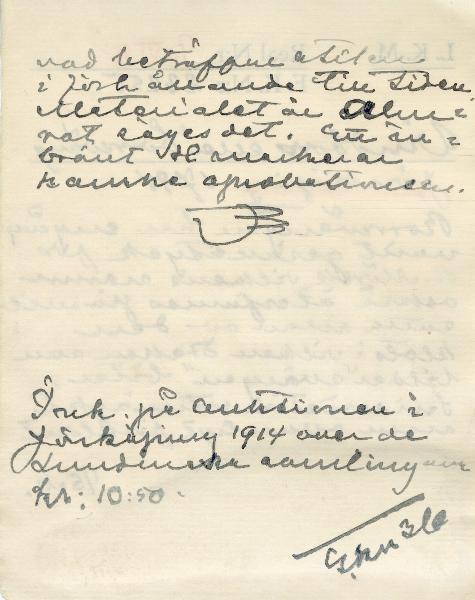 vad beträffar stilen
i förhållande till tiden.
Materialet är Alm=
rot säges det. En in=
bränt H markerar
kanske aprobationen.
Ink. på auktionen i
Jönköping 1914 över de
Lundinska samlingarna
kr: 10:50.